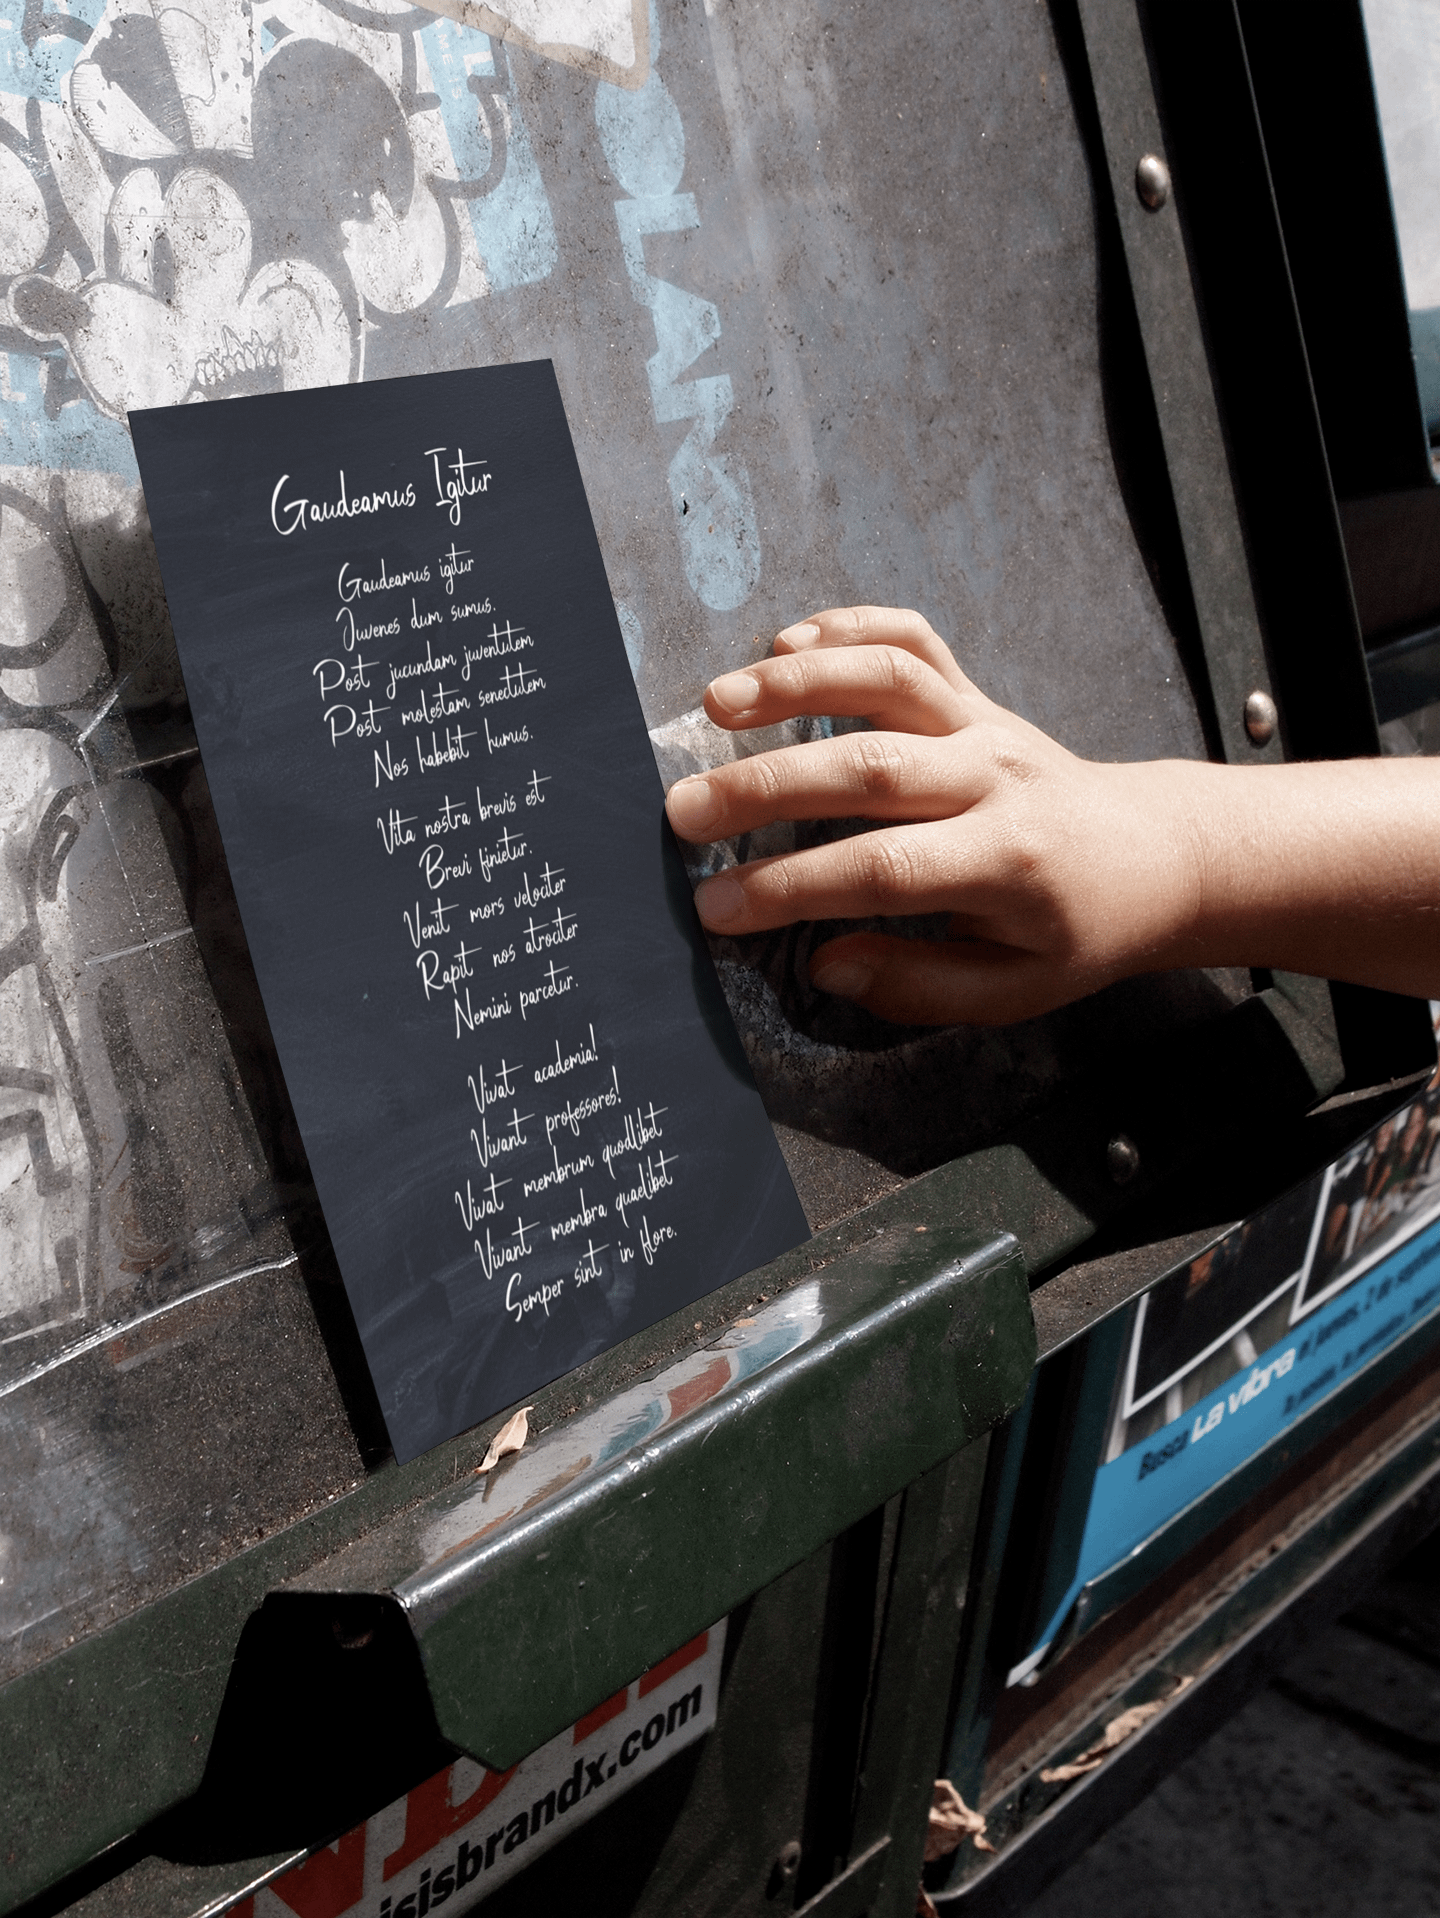 Gaudeamus Igitur
Gaudeamus igitur
Juvenes dum sumus.
Post jucundam juventutem
Post molestam senectutem
Nos habebit humus.
Vita nostra brevis est
Brevi finietur.
Venit mors velociter
Rapit nos atrociter
Nemini parcetur.
Vivat academia!
Vivant professores!
Vivat membrum quodlibet
Vivant membra quaelibet
Semper sint in flore.
Busca La vibra el jueves, 2 de septiembre
isisbrandx.com